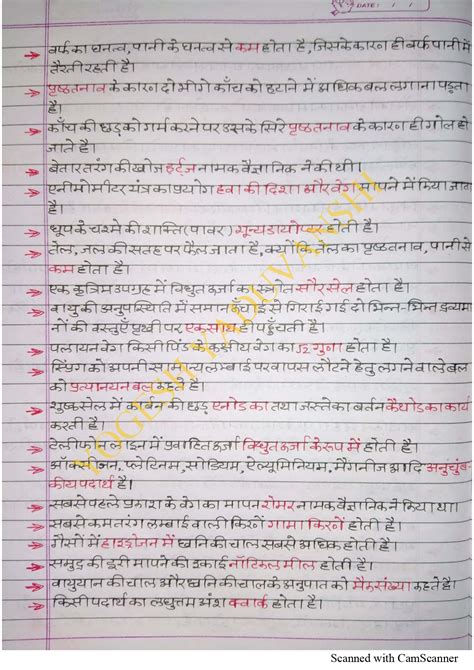 DATE: / /
→ बर्फ का घनत्व, पानी के घनत्व से कम होता है, जिसके कारण ही बर्फ पानी में
तैरती रहती है।
→ पृष्ठतनाव के कारण दो भीगे काँच को हटाने में अधिक बल लगाना पड़ता
है।
→ काँच की छड़ को गर्म करने पर उसके सिरे पृष्ठतनाव के कारण ही गोल हो
जाते है।
→ बेतार तरंग की खोज हर्ट्ज नामक वैज्ञानिक ने की थी।
→ एनीमोमीटर यंत्र का प्रयोग हवा की दिशा और वेग मापने में किया जाता
है।
→ धूप के चश्मे की शाक्ति (पावर) शून्य डायोप्टर होती है।
→ तेल, जल की सतह पर फैल जाता है, क्योंकि तेल का पृष्ठतनाव, पानी से
कम होता है।
→ एक कृत्रिम उपग्रह में विद्युत ऊर्जा का स्त्रोत सौर सेल होता है।
→ वायु की अनुपस्थिति में समान ऊँचाई से गिराई गई दो भिन्न-भिन्न द्रव्यमा
नों की वस्तुएँ पृथ्वी पर एक साथ ही पहुँचती है।
→ पलायन वेग किसी पिंड के कक्षीय वेग का √2 गुना होता है।
→ स्प्रिंग को अपनी सामान्य लम्बाई पर वापस लौटने हेतु लगने वाले बल
को प्रत्यानयन बल कहते है।
→ शुष्क सेल में कार्बन की छड़ एनोड का तथा जस्ते का बर्तन कैथोड का कार्य
करती है।
→ टेलीफोन लाइन में प्रवाहित ऊर्जा विद्युत ऊर्जा के रूप में होती है।
→ ऑक्सीजन, प्लेटिनम, सोडियम, ऐल्यूमिनियम, मैंगनीज आदि अनुचुंब-
कीय पदार्थ है।
→ सबसे पहले प्रकाश के वेग का मापन रोमर नामक वैज्ञानिक ने किया था।
→ सबसे कम तरंग लम्बाई वाली किरणें गामा किरणें होती है।
→ गैसों में हाइड्रोजन में ध्वनि की चाल सबसे अधिक होती है।
→ समुद्र की दूरी मापने की इकाई नॉटिकल मील होती है।
→ वायुयान की चाल और ध्वनि की चाल के अनुपात को मैक संख्या कहते है।
→ किसी पदार्थ का लघुत्तम अंश क्वार्क होता है।
YOGESH YADUVANSHI
Scanned with CamScanner